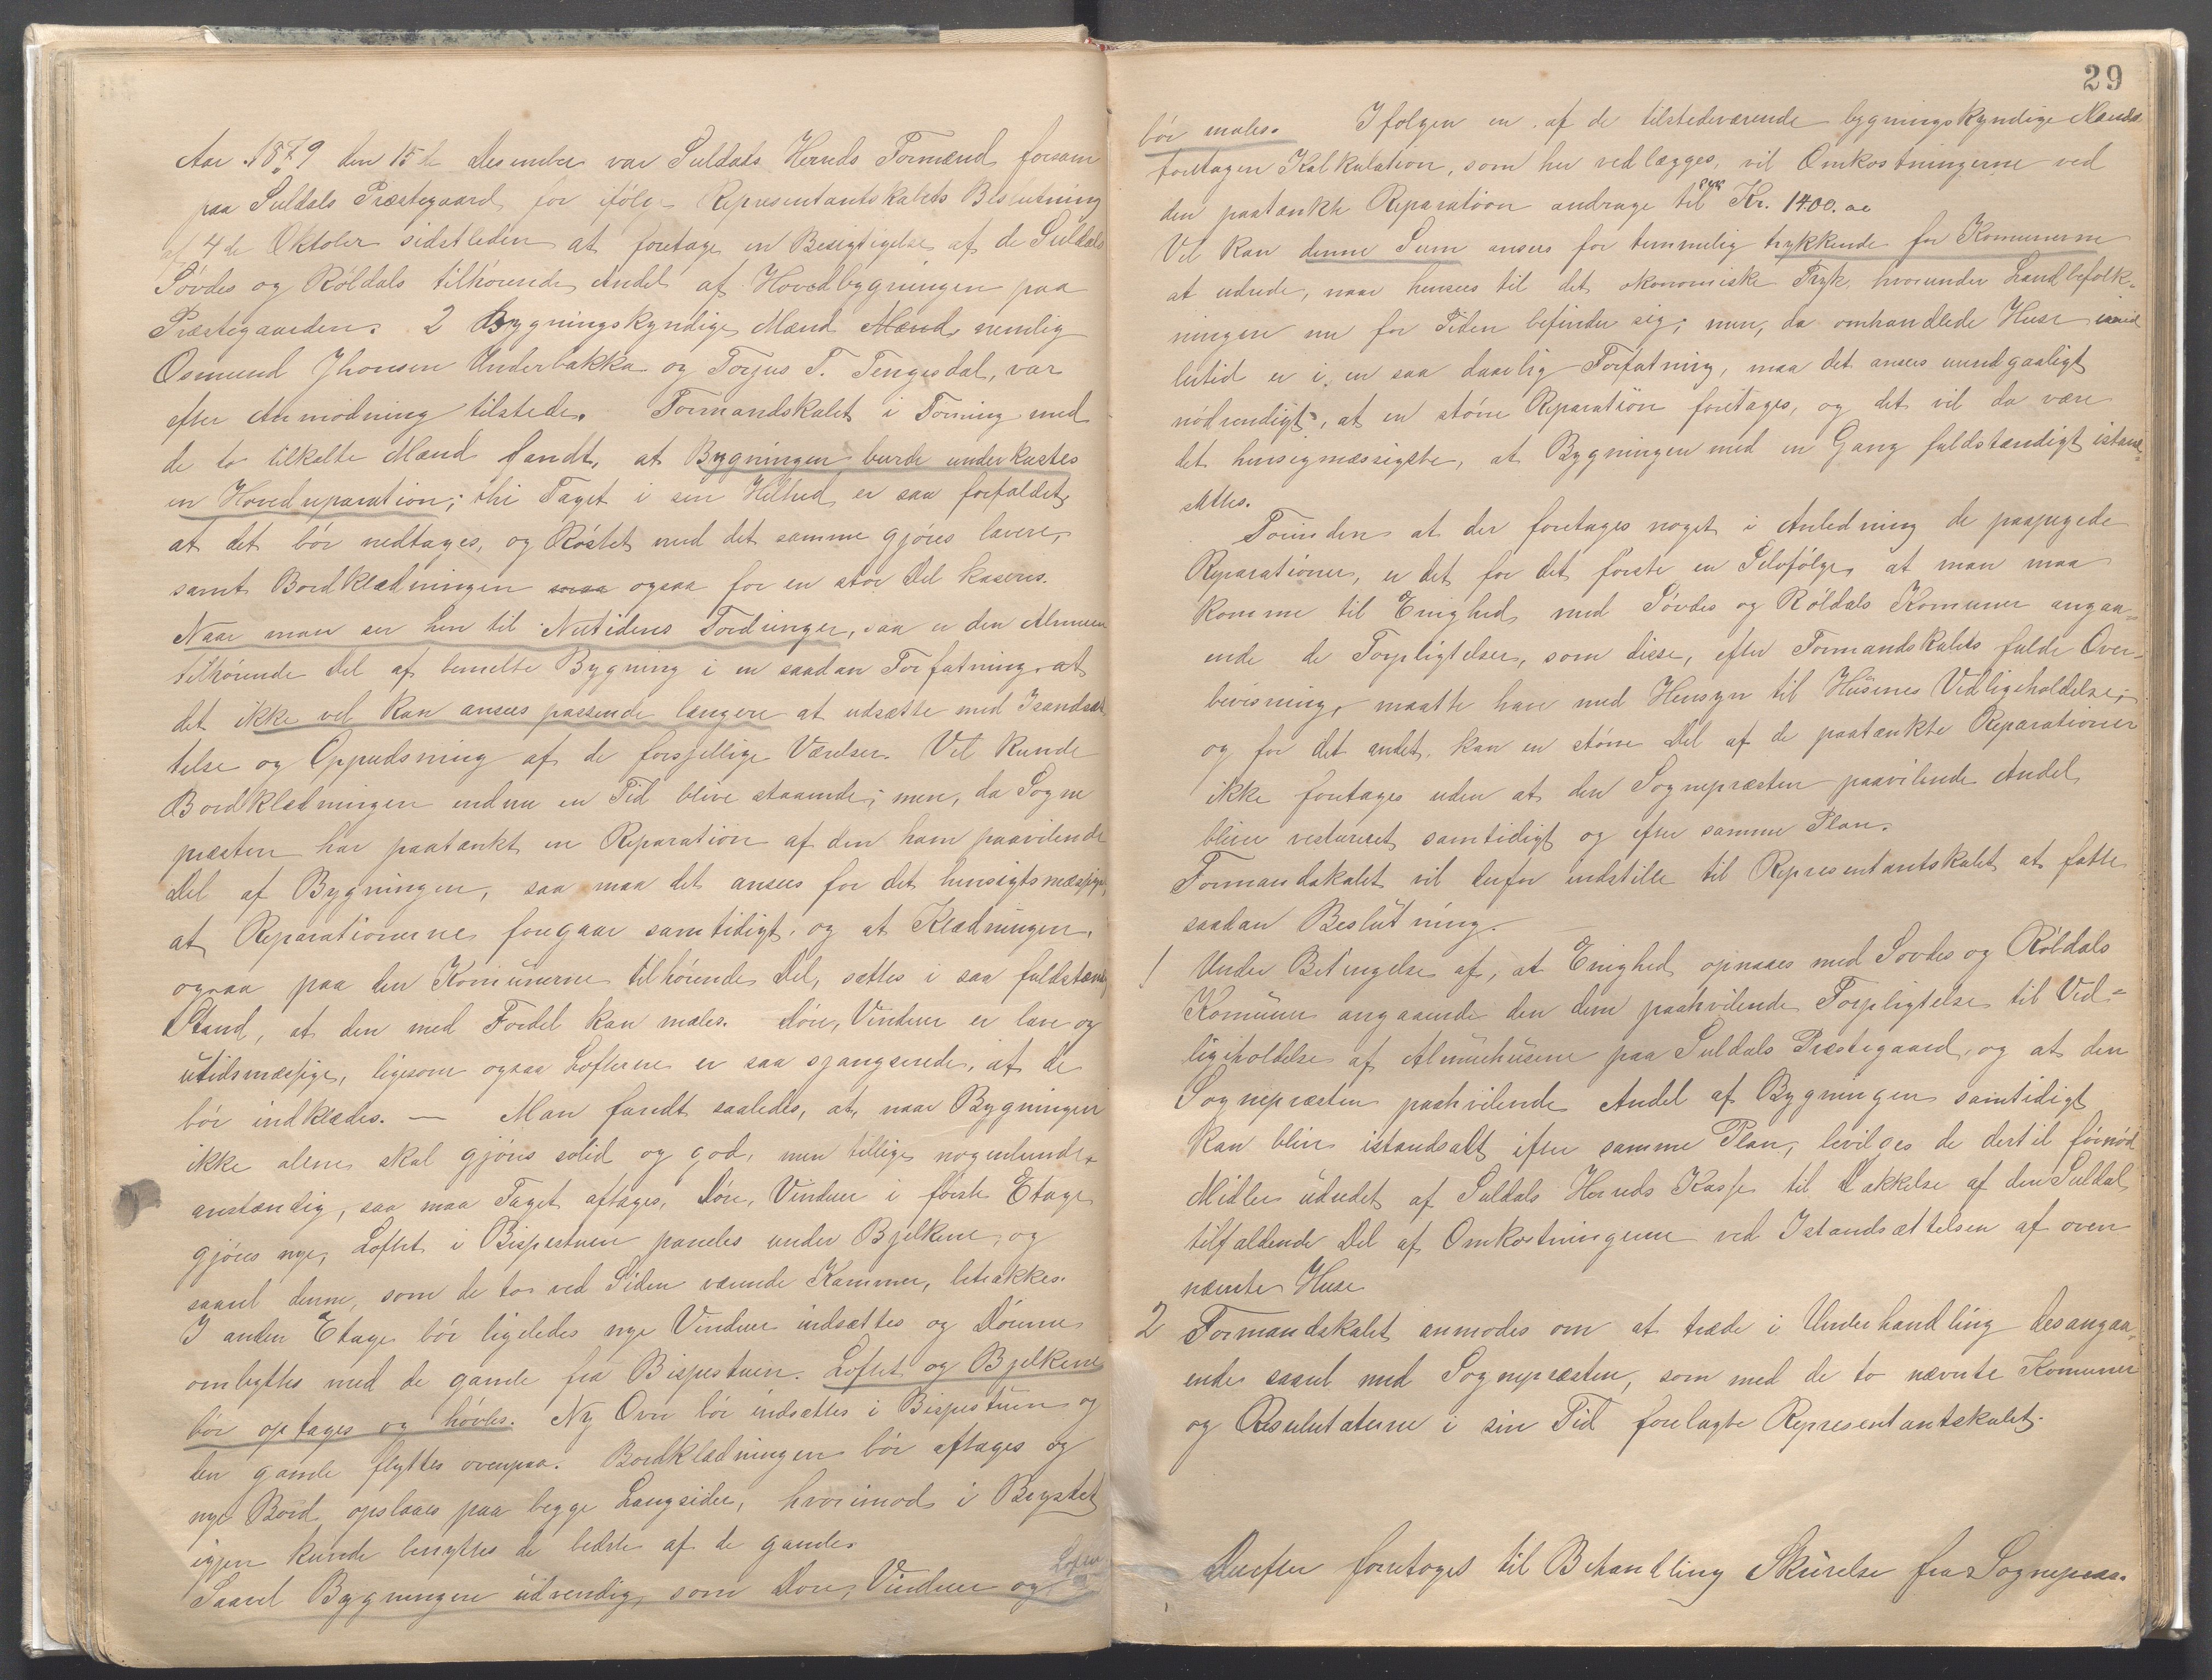 Aar 1879 den 15de Desember var Suldals Herreds Formænd forsam
paa Suldals Præstegaard for ifölge Representantskabets Beslutning
af 4de Oktober sidstleden at foretage en Besigtigelse af de Suldals
Sövdes og Röldals tilhörende Andel af Hovedbygningen paa
Præstegaarden. 2 Bygningskyndige Mænd Mænd nemlig
Osmund Jhonsen Underbakka og Torjus T. Tengesdal, var
efter Anmodning tilstede. Formandskabet i Forening med
de to tilkalte Mænd fandt, at Bygningen burde underkastes
en Hovedreparation; thi Taget i sin Helhed er saa forfaldet,
at det bör nedtages, og Röstet med det samme gjöres lavere,
samt Bordklædningen maa ogsaa for en stor Del kaseres.
Naar man ser hen til Nutidens Fordringer, saa er den Almuen
tilhörende Del af bemelte Bygning i en saadan Forfatning, at
det ikke vel kan ansees passende længere at udsætte med Isandsæt
telse og Oppudsning af de forsjellige Værelser. Vel kunde
Bordklædningen endnu en Tid blive staaende; men, da Sogne
præsten har paatænkt en Reparation af den ham paavilende
Del af Bygningen, saa maa det ansees for det hensigtsmæssigst,
at Reparationerne foregaar samtidigt, og at Klædningen,
ogsaa paa den Komünerne tilhörende Del, sættes i saa fuldstændig
Stand, at den med Fordel kan males. Döre, Vinduer er lave og
utidsmæssige, ligesom ogsaa Lofterne er saa sjangserede, at de
bör indklædes. — Man fandt saaledes, at, naar Bygningen
ikke alene skal gjöres solid og god, men tillige nogenlunde
anstændig, saa maa Taget aftages, Döre, Vinduer i förste Etage
gjöres nye, Loftet i Bispestuen paneles under Bjelkene, og
saavel denne, som de to ved Siden værende Kammer, betrækkes.
I anden Etage bör ligeledes nye Vinduer indsættes og Dörene
ombyttes med de gamle fra Bispestuen. Loftet og Bjelkene
bör optages og hövles. Ny Ovn bör indsættes i Bispestuen og
den gamle flyttes ovenpaa. Bordklædningen bör aftages og
nye Bord opslaaes paa begge Langsider, hvorimod i Brystet
igjen kunde benyttes de bedste af de gamle.
Saavel Bygningen udvendig, som Dore, Vinduer og Lofter
29
bör males. Ifolgen en af de tilstedeværende bygningskyndige Mænds
foretagen Kalkulation, som her vedlægges, vil Omkostningerne ved
den paatænkte Reparation andrage til Kr. 1400.00
Vel kan denne Sum ansees for temmelig trykkende for Komunerne
at udrede, naar hensees til det økonomiske Tryk, hvorunder Landbefolk-
ningen nu for Tiden befinder sig; men, da omhandlede Huse imid
lertid er i en saa daarlig Forfatning, maa det ansees uundgaaligt
nödvendigt, at en större Reparation foretages, og det vil da være
det hensigmæssigste, at Bygningen med en Gang fuldstændigt istand-
sættes.
Forinden at der foretages noget i Anledning de paapegede
Reparationer, er det for det förste en Selvfölge, at man maa
komme til Enighed med Sövdes og Röldals Komuner angaa-
ende de Forpligtelser, som disse, efter Formandskabets fulde Over-
bevisning, maatte have med Hensyn til Husenes Vedligeholdelse;
og for det andet, kan en större Del af de paatænkte Reparationer
ikke foretages uden at den Sognepræsten paavilende Andel
bliver restaureret samtidigt og efter samme Plan.
Formandskabet vil derfor indstille til Representantskabet at fatte
saadan Beslutning.
1 Under Betingelse af, at Enighed opnaaes med Sovdes og Röldals
Komuner angaaende den dem paahvilende Forpligtelse til Ved-
ligeholdelse af Almuehusene paa Suldals Præstegaard, og at den
Sognepræsten paahvilende Andel af Bygningen samtidigt
kan blive istandsatt efter samme Plan, bevilges de dertil förnöd
Midler udredet af Suldals Herreds Kasse til Dækkelse af den Suldal
tilfaldende Del af Omkostningerne ved Istandsættelsen af oven
nævnte Huse
2 Formandskabet anmodes om at træde i Underhandling desangaa-
ende saavel med Sognepræsten, som med de to nævnte Komuner
og Resulutaterne i sin Tid forelagte Representantskabet.
Derefter foretoges til Behandling Skrivelse fra Sognepræs-